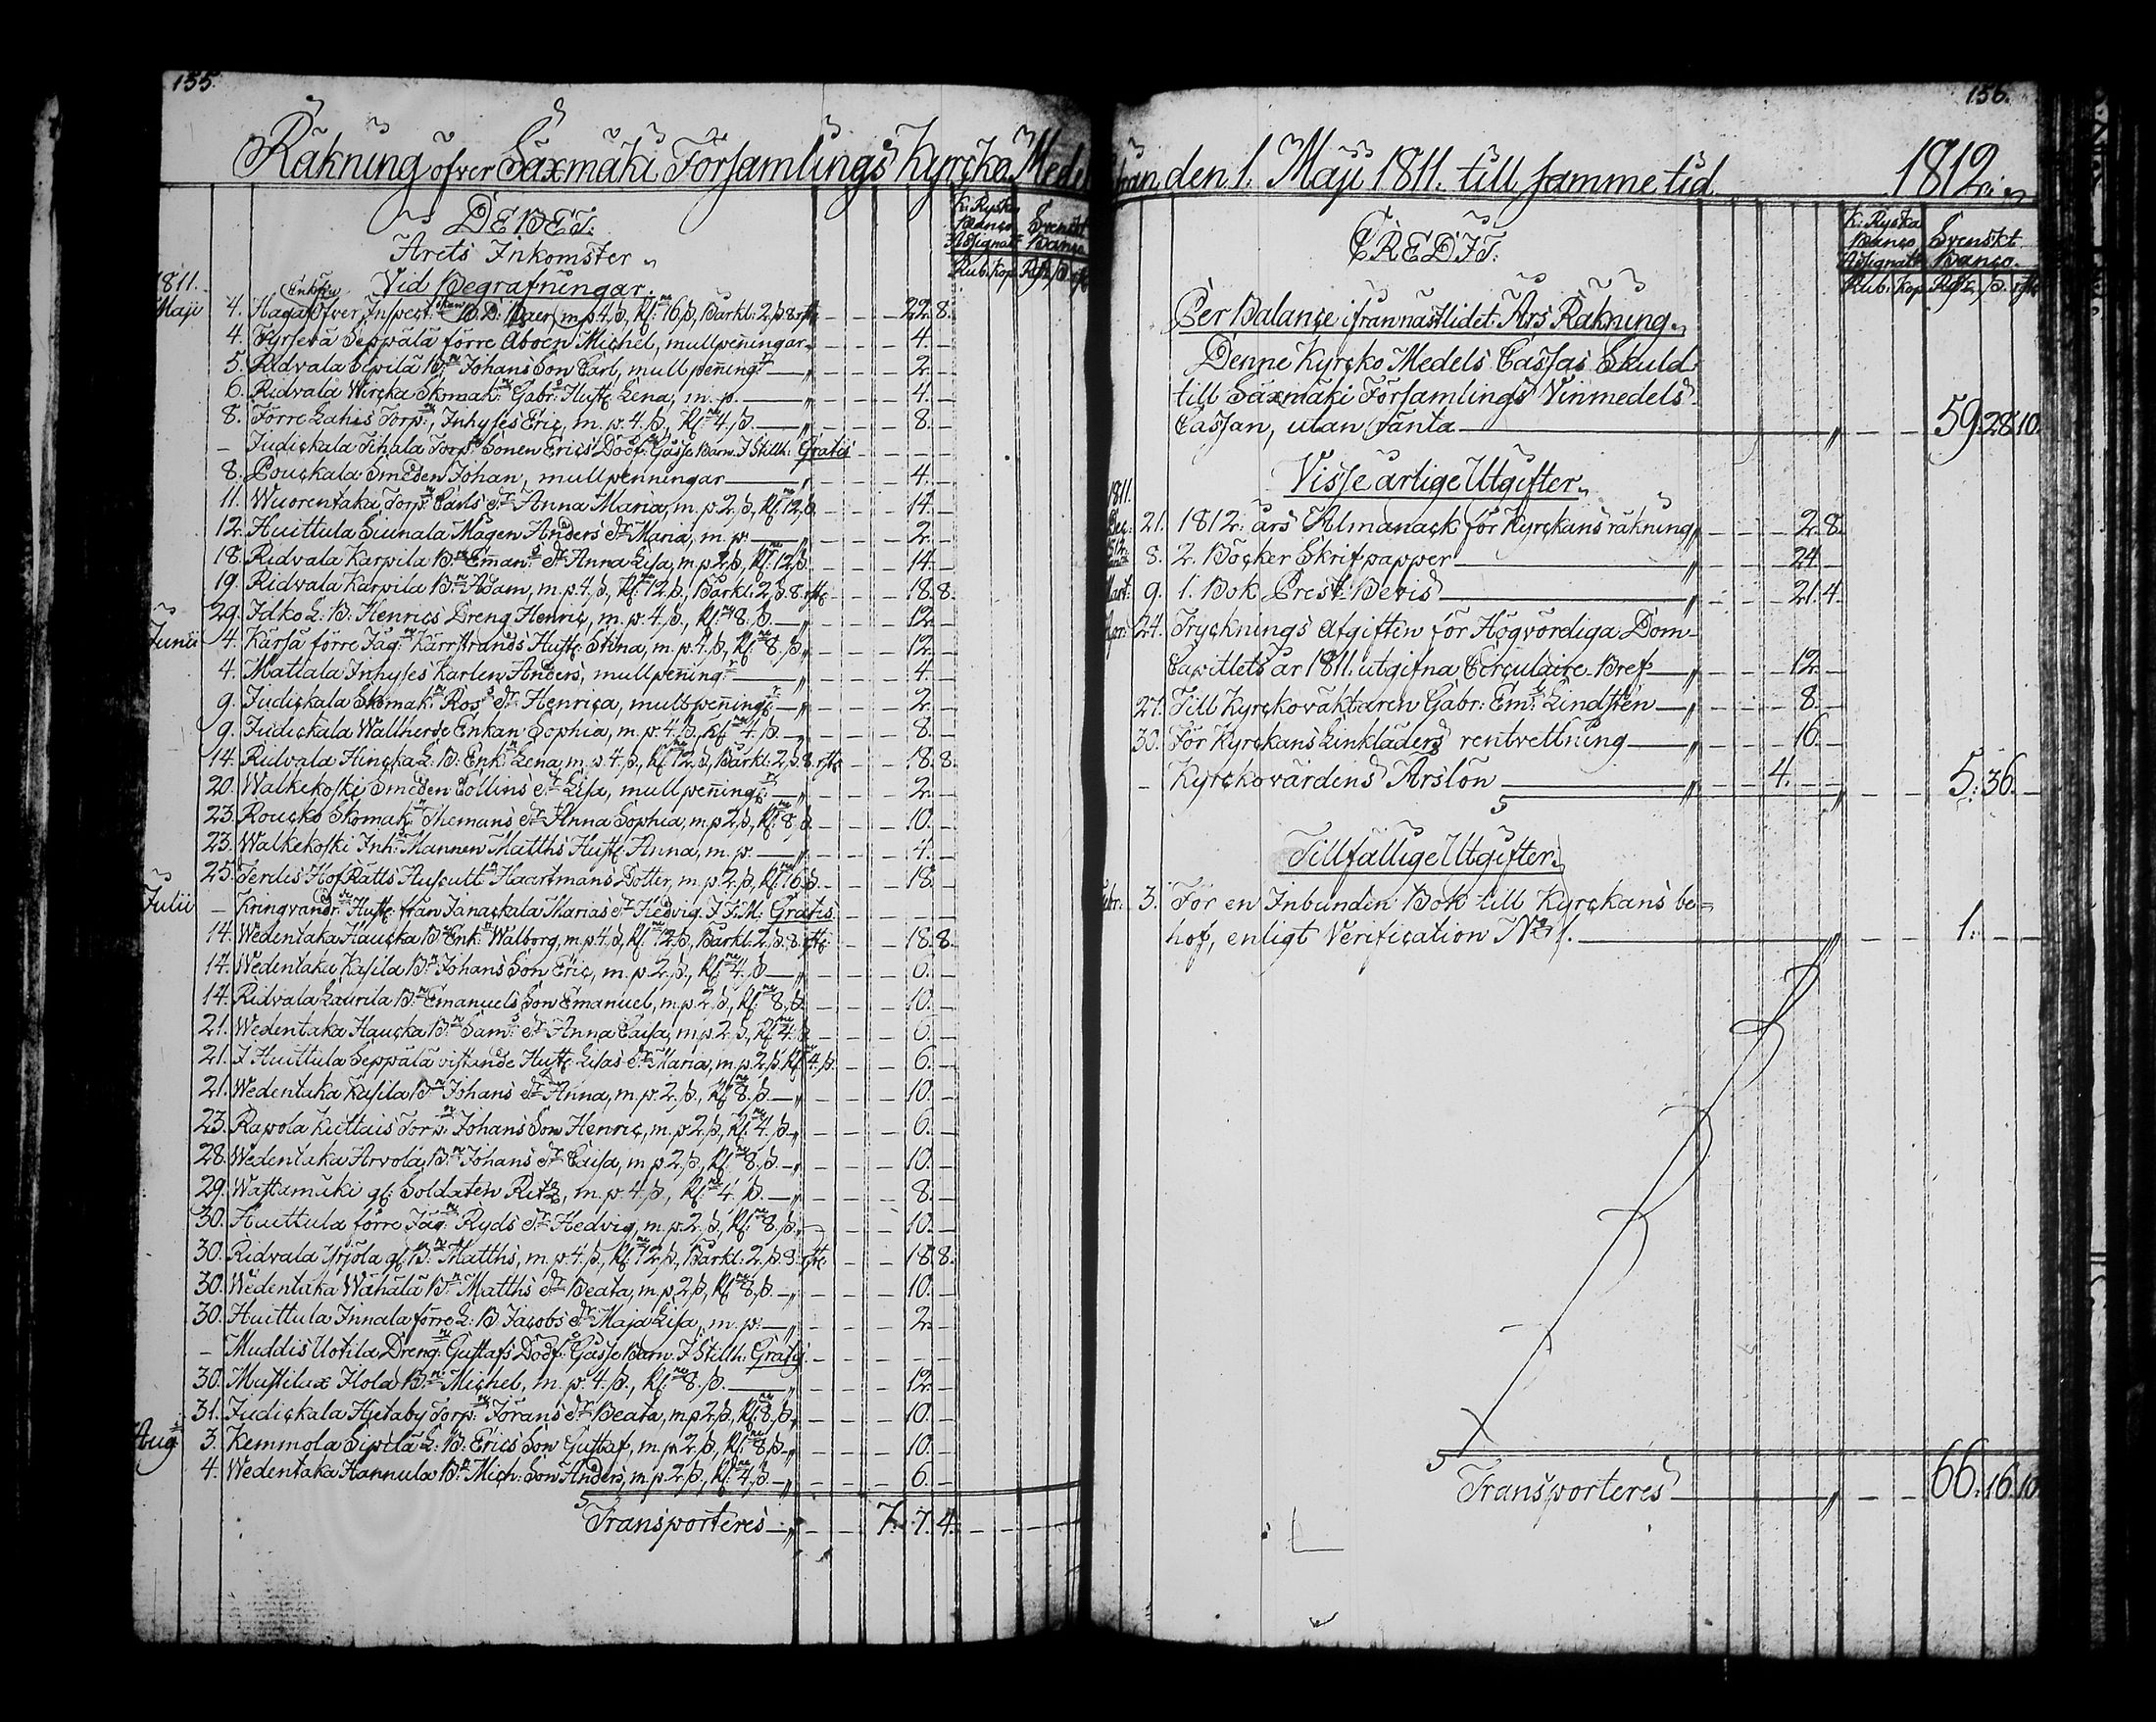 155.
Räkning öfver Säxmäki Församlings Kyrcko Medel
DEBET.
K: Ryska Banco Assignat: Svenskt Banco
Årets Inkomster
Rub. kop. Rd. ß. rst.
1811. Vid Begrafningar.
Maji 4. Haga Öfver Inspect: m.p. 4. ß, Kl: 16 ß, Bårkl: 2. ß 8 rst — 22. 8.
4. Seppälä förre Åboen Michel, mullpeningar — 4.
5. Ridvala Sipilä B:ns Johans Son Carl, mullpenning:r — 2.
6. Ridvala Wircka Skomak: Gabr: Hust: Lena, m. p. — 4.
8. Förre Lahis Torp:, Inhyses Eric, m. p. 4. ß, Kl:ne 4. ß. — 8.
– Judickala Tihala Torp: Sonen Erics Dödf: Gåsse Barn. I Stillh: Gratis
8. Pouckala Smeden Johan, mullpenningar — 4.
11. Wuorentaka Torp: Carls D:r Anna Maria, m. p. 2. ß, Kl: 12. ß — 14.
12. Huittula Siunala Mågen Anders D:r Maria, m. p. — 2.
18. Ridvala Karpila B:ns Eman:s D:r Anna Lisa, m. p 2 ß, Kl: 12. ß. — 14.
19. Ridvala Karpila B:n Adam, m. p. 4. ß, Kl: 12. ß, Bårkl: 2. ß. 8. rst — 18. 8.
29. Idko L. B. Henrics Dreng Henric, m. p. 4. ß., Kl:ne 8. ß. — 12.
Junii 4. Kärsä förre Jäg: Kärrstrands Hust: Stina, m. p. 4. ß, Kl:ne 8. ß — 12.
4. Mattala Inhyses Karlen Anders, mullpening:r — 4.
9. Judickala Skomak: Ros D:r Henrica, mullpening:r — 2.
9. Judickala Wallherde Enkan Sophia, m. p. 4. ß, Kl:ne 4. ß. — 8.
14. Ridvala Hincka L: B: Enk: Lena, m. p. 4. ß, Kl: 12. ß, Bårkl: 2. ß. 8. rst — 18. 8.
20. Walkekoski Smeden Collins D:r Lisa, mullpening:r — 2.
23. Roucko Skomak: Themans D:r Anna Sophia, m. p 2. ß, Kl: 8. ß. — 10.
23. Walkekoski Inh: Mannen Matths Hust: Anna, m. p. — 4.
25. Jerdis HofRätts Auscult: Haartmans Dotter, m. p. 2. ß, Kl: 16. ß. — 18.
Julii – Kringvandr: Hust: från Janackala Marias D:r Hedvig. I J. M: Gratis
14. Wedentaka Haucka B: Enk: Walborg, m. p. 4 ß, Kl: 12. ß, Bårkl: 2. ß. 8. rst — 18. 8.
14. Wedentaka Kasila B:ns Johans Son Eric, m. p. 2. ß., Kl:ne 4. ß — 6.
14. Ridvala Laurila B:ns Emanuels Son Emanuel, m. p. 2. ß, Kl: 8. ß. — 10.
21. Wedentaka Haucka B:ns Sam:s D:r Anna Caisa, m. p 2. ß, Kl: 4. ß — 6.
21. I Huittula Seppälä vistande Hust: Lisas D:r Maria, m. p. 2. ß. Kl: 4. ß. — 6.
21. Wedentaka Kasila B:ns Johans D:r Anna, m. p. 2. ß., Kl:ne 8. ß. — 10.
23. Rapola Kuttais Torp: Johans Son Henric, m. p 2. ß, Kl:ne 4. ß — 6.
28. Wedentaka Arvola B:ns Johans D:r Caisa, m. p 2. ß., Kl:ne 8. ß. — 10.
29. Wattamäki gl: Soldaten Ritz, m. p. 4. ß., Kl:ne 4. ß. — 8.
30. Huittula förre Jäg: Ryds D:r Hedvig, m. p. 2. ß, Kl:ne 8. ß. — 10.
30. Ridvala Yrjölä gl: B:n Matths, m. p. 4. ß., Kl: 12. ß, Bårkl: 2. ß. 8. rst — 18. 8.
30. Wedentaka Wähälä B:ns Matths D:r Beata, m. p. 2. ß, Kl:ne 8. ß. — 10.
30. Huittula Innala förre L: B Jacobs D:r Maja Lisa, m. p. — 2.
– Muddis Uotila Dreng: Gustafs Dödf: Gåsse Barn. I Stillh: Gratis
30. Mustilax Ilola B:n Michel, m. p. 4. ß., Kl:ne 8. ß. — 12.
31. Judickala Hyitaby Torp: Jörans D:r Beata, m. p 2. ß, Kl: 8. ß. — 10.
Aug: 3. Kemmola Sipilä L: B: Erics Son Gustaf, m. p. 2. ß, Kl: 8. ß — 10.
4. Wedentaka Hannula B:ns Mich: Son Anders, m. p. 2. ß, Kl: 4. ß. — 6.
Transporteres — 7. 7. 4.
156.
från den 1. Maji 1811. till samme tid 1812.
CREDIT.
K: Ryska Banco Assignat: Svenskt Banco.
Rub. kop. Rd. ß. rst
Per Balance ifrån nästlidet Års Räkning.
Denne Kyrcko Medels Cassas Skuld
till Säxmäki Församlings Vinmedels
Cassan, utan ränta — 59. 28. 10.
Visse årlige Utgifter.
1811.
Dec: 21. 1812: års Almanack för Kyrckans räkning — 2. 8.
1812. 8. 2. Böcker Skrifpapper — 24.
Mart: 9. 1. Bok Prest Bevis — 21. 4.
Apr: 24. Trycknings afgiften för Högvördiga Dom-
Capitlets år 1811. utgifna Circulaire-Bref — 12.
27. Till Kyrckovaktaren Gabr: Em: Lindstén — 8.
30. För Kyrckans Linkläders rentvettning — 16.
– Kyrckovärdens Årslön — 4. — 5. 36.
Tillfällige Utgifter.
Febr: 3. För en Inbunden Bok till Kyrckans be-
hof, enligt Verification N:o 1. — 1.
Transporteres — 66. 16. 10